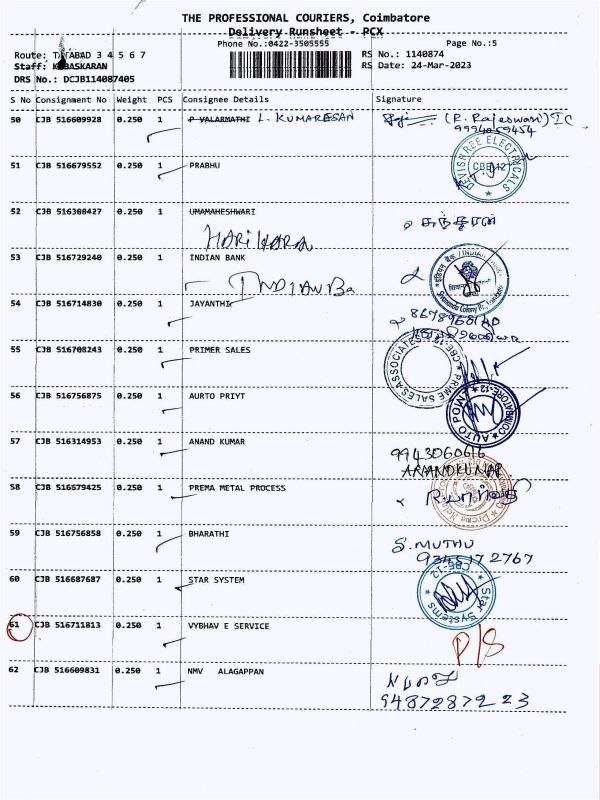 THE PROFESSIONAL COURIERS, Coimbatore
Delivery Runsheet - PCX
Phone No.:0422-3505555 Page No.:5
Route: 3 4 5 6 7 RS No.: 1140874
Staff: RS Date: 24-Mar-2023
DRS No.: DCJB114087405
S No Consignment No Weight PCS Consignee Details Signature
50 CJB 516609928 0.250 1 P VALARMATHI L. KUMARESAN (R. Rajeswari)
9994059454
51 CJB 516679552 0.250 1 PRABHU
DEVISHREE ELECTRICALS CBE-12
52 CJB 516308427 0.250 1 UMAMAHESHWARI
HARIHARA
53 CJB 516729240 0.250 1 INDIAN BANK
INDIAN Ba
54 CJB 516714830 0.250 1 JAYANTHI
55 CJB 516708243 0.250 1 PRIMER SALES
PRIME SALES ASSOCIATES CBE-12
56 CJB 516756875 0.250 1 AURTO PRIYT
57 CJB 516314953 0.250 1 ANAND KUMAR 9943060616
ANANDKUMAR
58 CJB 516679425 0.250 1 PREMA METAL PROCESS
59 CJB 516756858 0.250 1 BHARATHI S. MUTHU
9345172767
60 CJB 516687687 0.250 1 STAR SYSTEM
Star Systems CBE-12
61 CJB 516711813 0.250 1 VYBHAV E SERVICE P/S
62 CJB 516609831 0.250 1 NMV ALAGAPPAN
9487287223